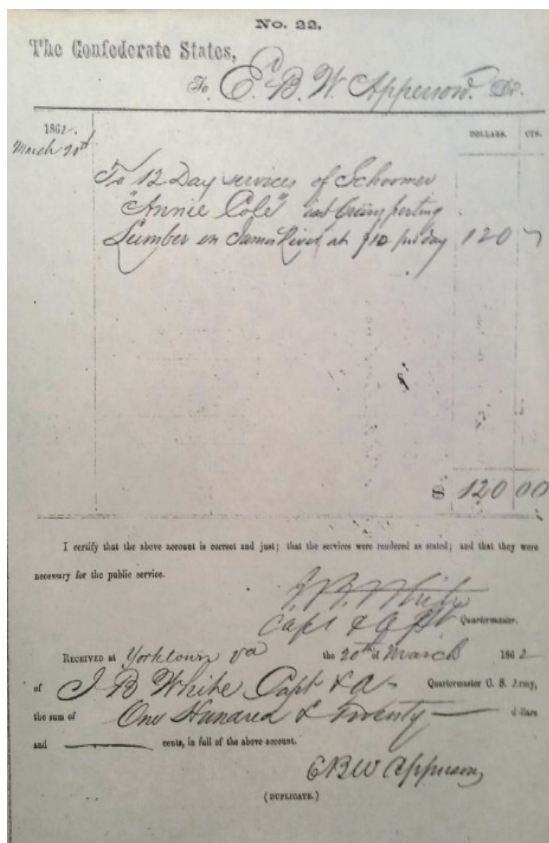 No. 22.
The Confederate States,
To E. B. W. Apperson. Dr.
1862.
DOLLARS. CTS.
March 20th
To 12 Day services of Schooner
"Annie Cole" in transporting
Lumber on James River at $10 per day 120
$ 120 00
I certify that the above account is correct and just; that the services were rendered as stated; and that they were
necessary for the public service.
J. B. White
Capt & A Quartermaster.
RECEIVED at Yorktown Va the 20th March 1862
of J B White Capt & A Quartermaster C. S. Army,
the sum of One Hundred & Twenty — dollars
and — cents, in full of the above account.
E B W Apperson
(DUPLICATE.)